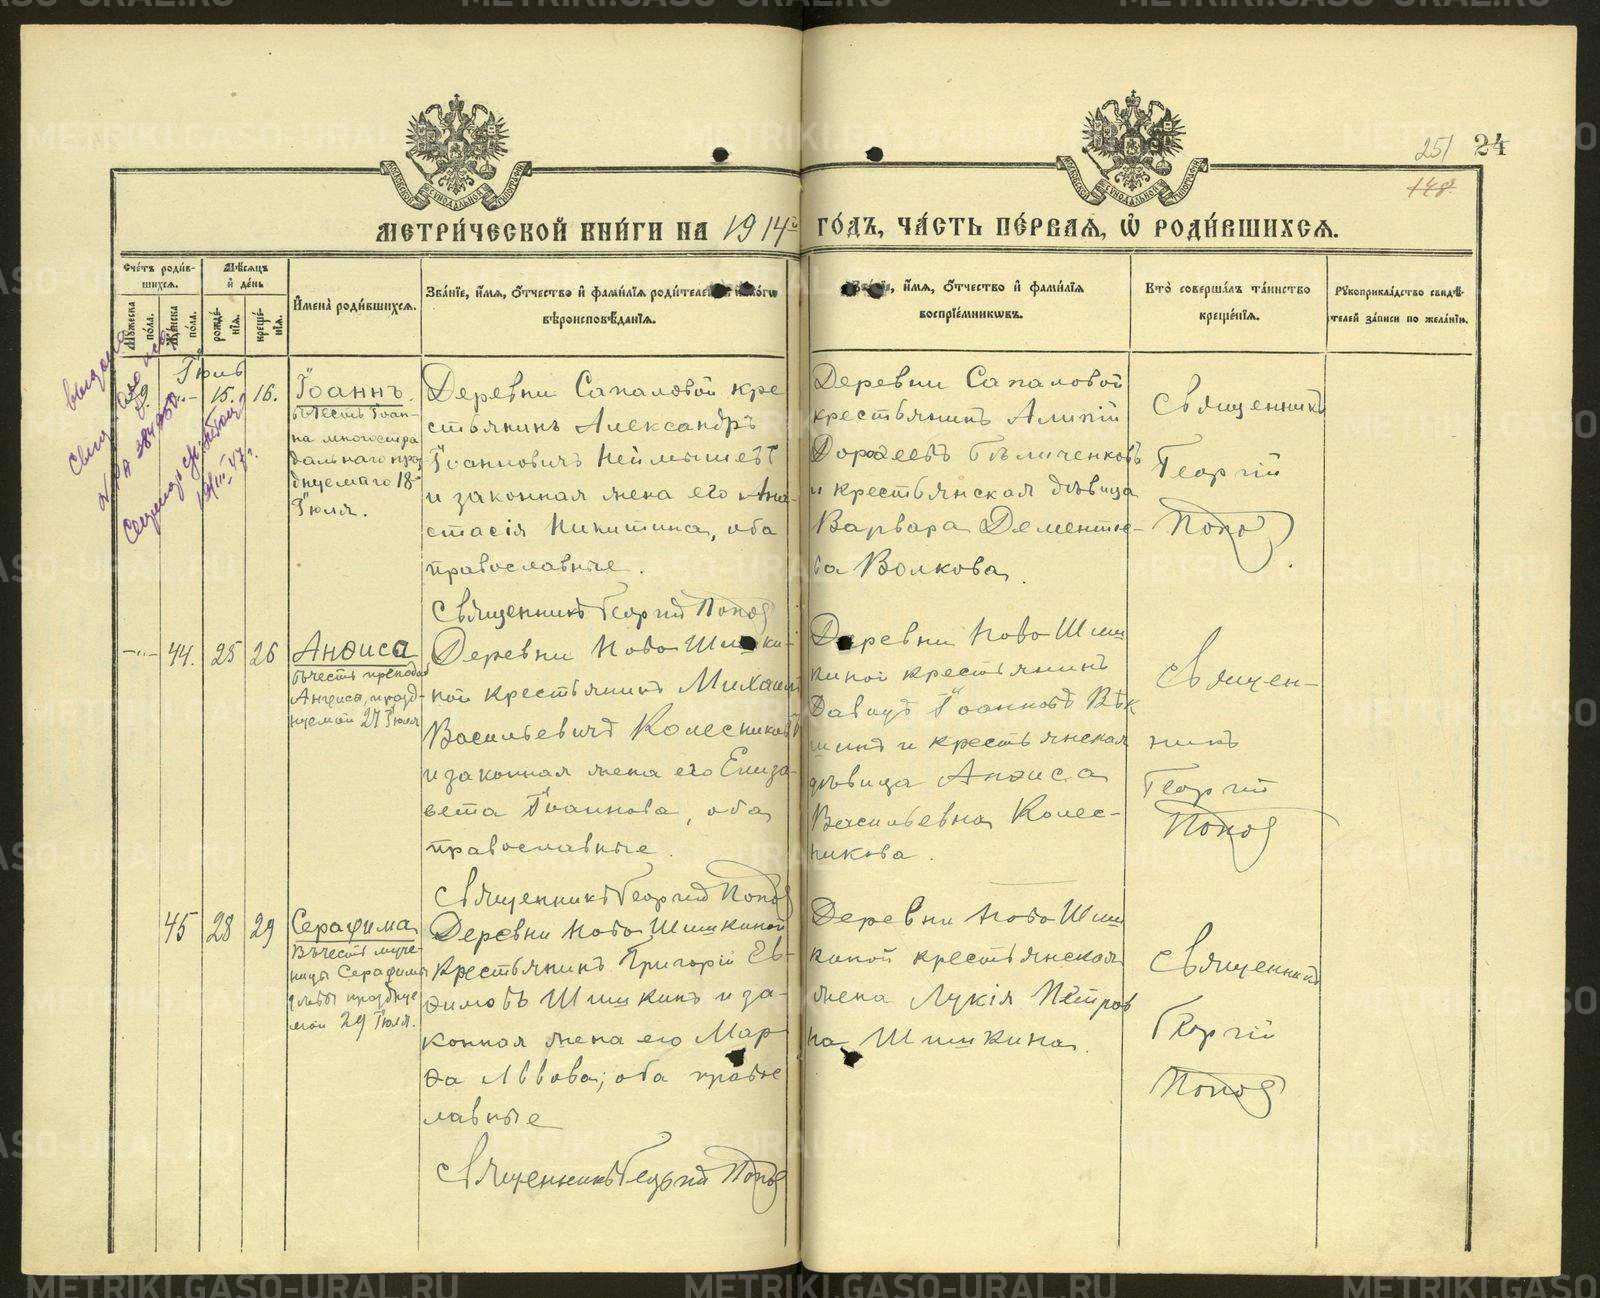 251 24
148
МЕТРИЧЕСКОЙ КНИГИ НА 1914й ГОДЪ, ЧАСТЬ ПЕРВАЯ, Ѡ РОДИВШИХСЯ.
Счетъ родив-
шихся.
Мужеска пола.
Женска пола.
Мѣсяцъ
и день
рожде-
нія.
креще-
нія.
Имена родившихся.
Званіе, имя, отчество и фамилія родителей
вѣроисповѣданія.
имя, отчество и фамилія
воспріемниковъ.
Кто совершалъ таинство
крещенія.
Рукоприкладство свидѣ-
телей записи по желанію.
Іюль
15. 16.
Іоаннъ.
Въ честь Іоан-
на многостра
дальнаго праз
днуемаго 18
Іюля.
Деревни Сапаловой кре
стьянинъ Александръ
Іоанновичъ Неймышевъ
и законная жена его Ана-
стасія Никитина, оба
православные.
Священникъ Георгій Поповъ
Деревни Сапаловой
крестьянинъ Алипій
Дорофеевъ Бѣличенковъ
и крестьянская дѣвица
Варвара Дементіе-
ва Волкова.
Священникъ
Георгій
Поповъ
44. 25 26
Анфиса
Въ честь препод
Анфисы, празд-
нуемой 27 Іюля
Деревни Ново Шишки-
ной крестьянинъ Михаилъ
Васильевичъ Колесниковъ
и законная жена его Елиза-
вета Іоаннова, оба
православные.
Священникъ Георгій Поповъ
Деревни Ново Шиш
киной крестьянинъ
Давидъ Іоанновъ Вѣк
шинъ и крестьянская
дѣвица Анфиса
Васильевна Колес-
никова.
Священ-
никъ
Георгій
Поповъ
45 28 29
Серафима
Въ честь муче-
ницы Серафимы
дѣвы праздную
мой 29 Іюля.
Деревни Ново Шишкиной
крестьянинъ Григорій Ев-
фимовъ Шишкинъ и за-
конная жена его Мар
фа Львова; оба право
славные
Священникъ Георгій Поповъ
Деревни Ново Шиш
киной крестьянская
жена Лукія Петров
на Шишкина.
Священникъ
Георгій
Поповъ
METRIKI.GASO-URAL.RU